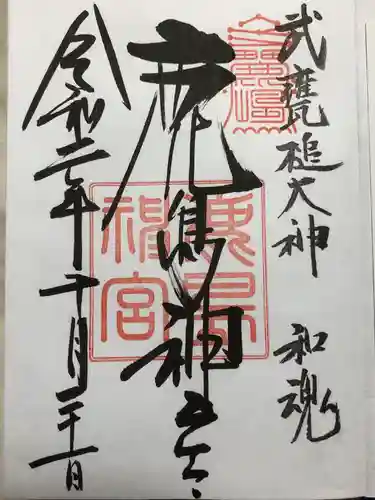 武甕槌大神　和魂
鹿島神宮
鹿島神宮
令和二年十月二十一日